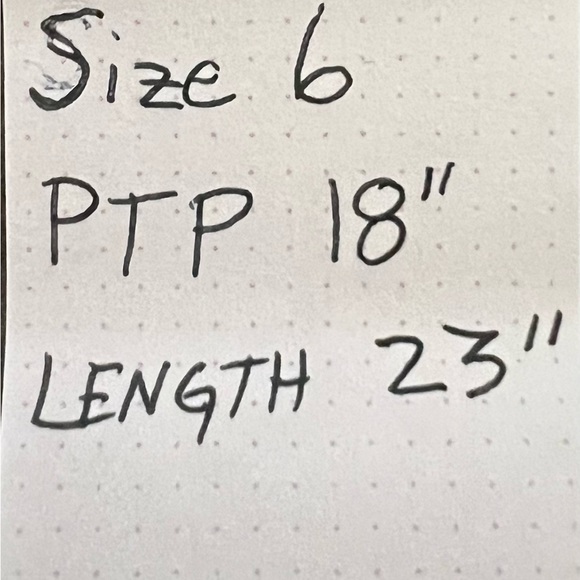 Size 6
PTP 18"
LENGTH 23"